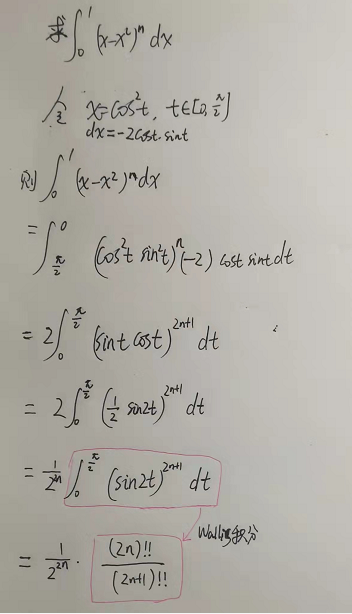 求∫₀¹ (x-x²)ⁿ dx
令 x=cos²t, t∈[0, π/2]
dx=-2cost·sint
则∫₀¹ (x-x²)ⁿ dx
=∫_{π/2}^{0} (cos²t sin²t)ⁿ (-2) cost sint dt
=2∫₀^{π/2} (sint cost)^{2n+1} dt
=2∫₀^{π/2} (1/2 sin2t)^{2n+1} dt
=1/2^{2n} ∫₀^{π/2} (sin2t)^{2n+1} dt
Wallis积分
=1/2^{2n} · (2n)!!/(2n+1)!!